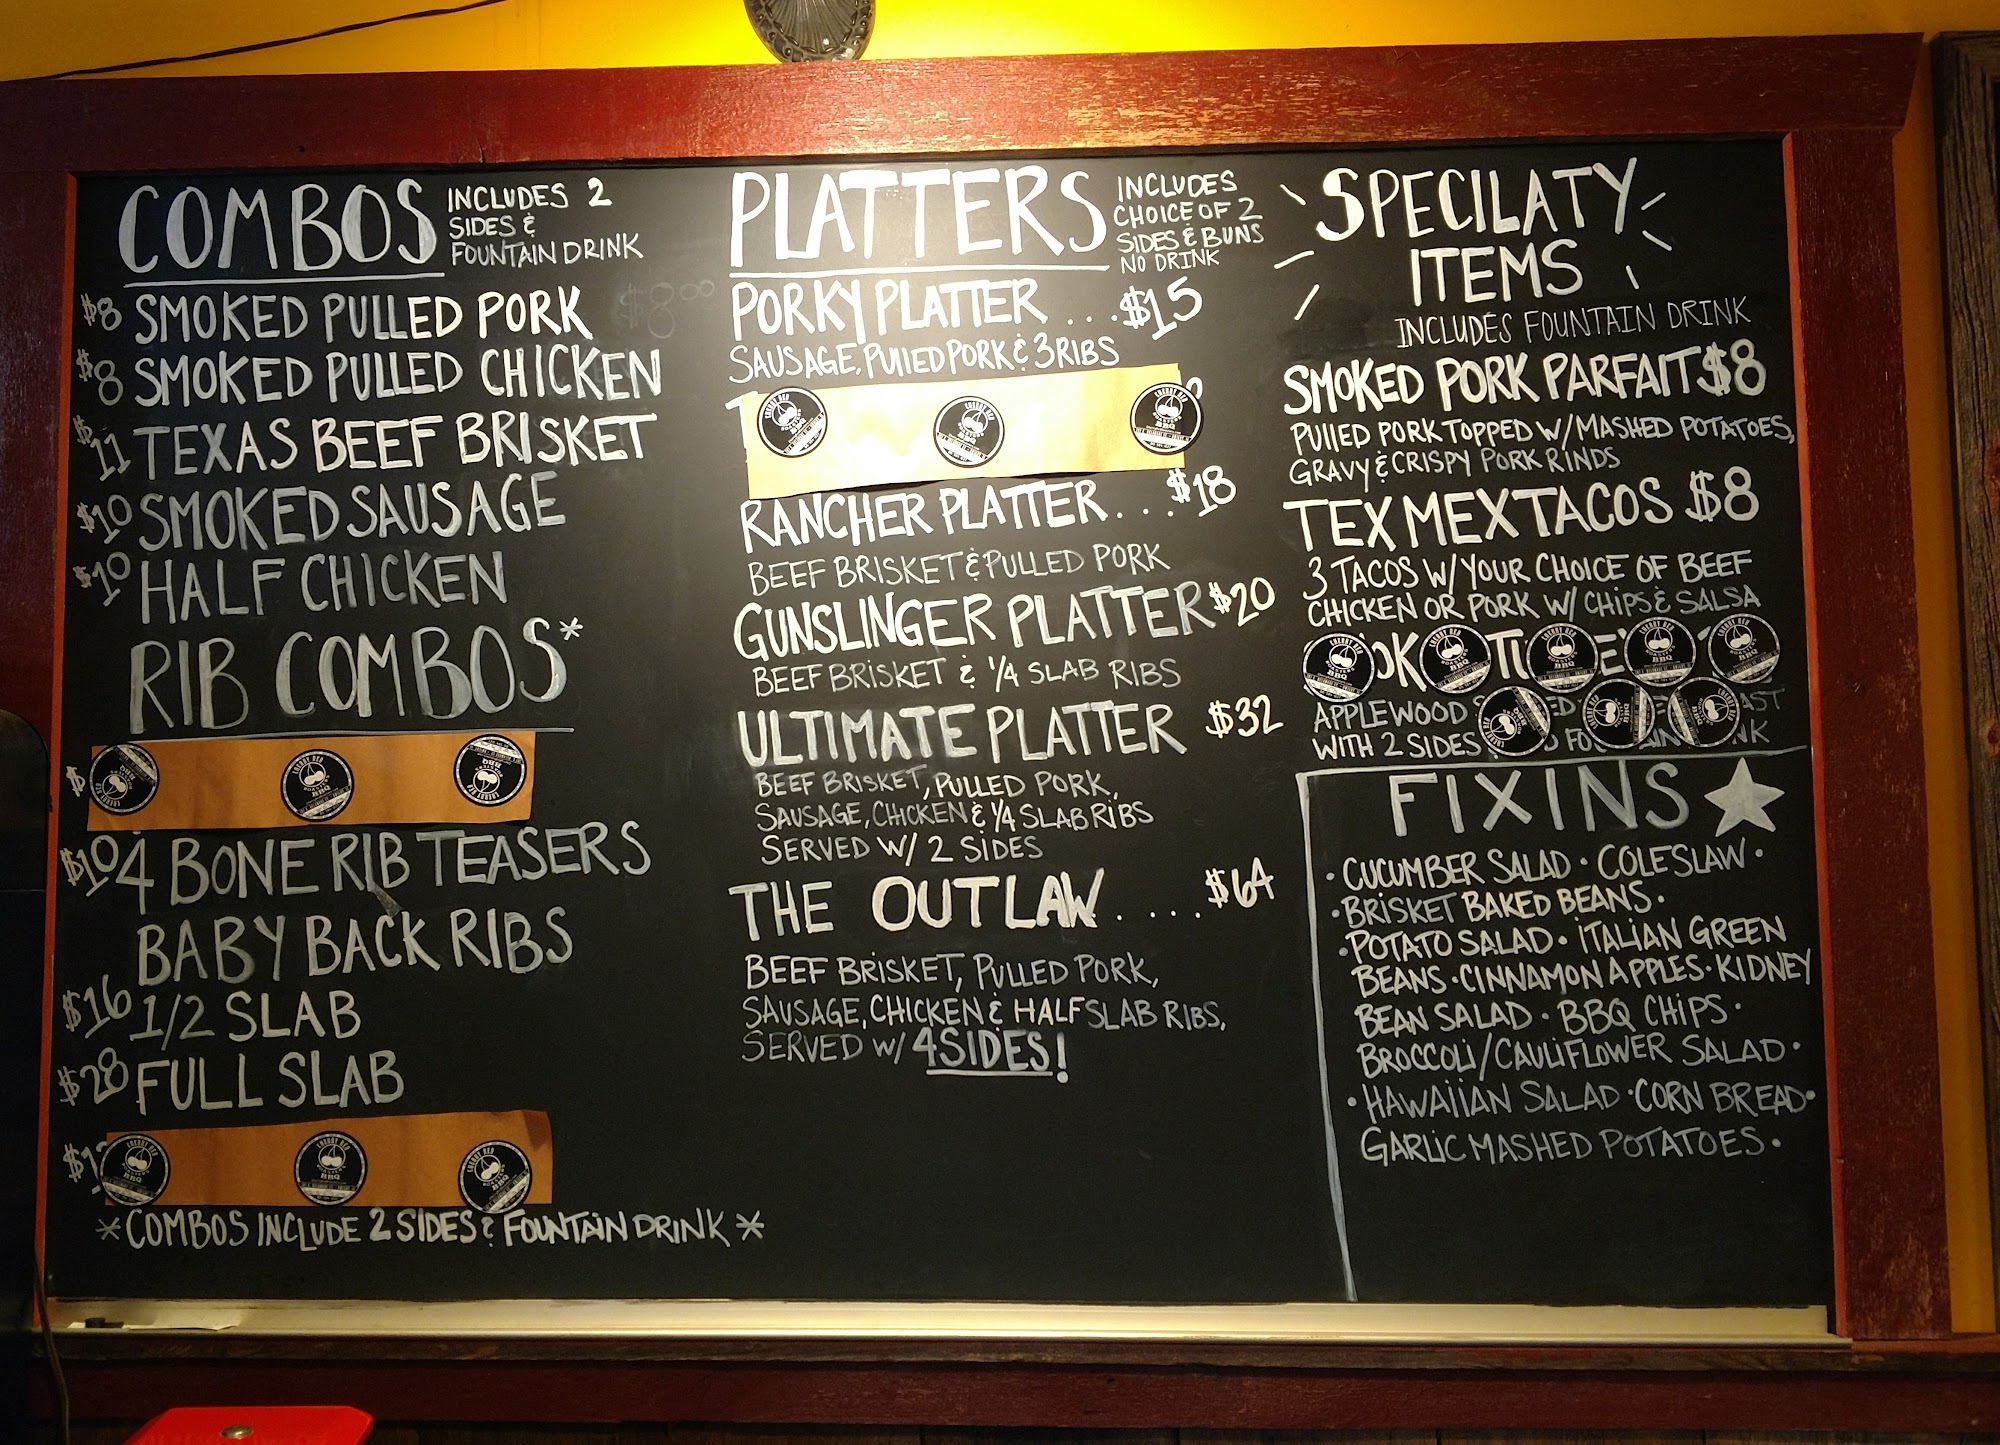 COMBOS
INCLUDES 2
SIDES &
FOUNTAIN DRINK
$8 SMOKED PULLED PORK $8.00
$8 SMOKED PULLED CHICKEN
$11 TEXAS BEEF BRISKET
$10 SMOKED SAUSAGE
$10 HALF CHICKEN
RIB COMBOS*
$
$10 4 BONE RIB TEASERS
BABY BACK RIBS
$16 1/2 SLAB
$28 FULL SLAB
*COMBOS INCLUDE 2 SIDES & FOUNTAIN DRINK*
PLATTERS
INCLUDES
CHOICE OF 2
SIDES & BUNS
NO DRINK
PORKY PLATTER ...$15
SAUSAGE, PULLED PORK & 3 RIBS
RANCHER PLATTER...$18
BEEF BRISKET & PULLED PORK
GUNSLINGER PLATTER $20
BEEF BRISKET & 1/4 SLAB RIBS
ULTIMATE PLATTER $32
BEEF BRISKET, PULLED PORK,
SAUSAGE, CHICKEN & 1/4 SLAB RIBS
SERVED W/ 2 SIDES
THE OUTLAW....$64
BEEF BRISKET, PULLED PORK,
SAUSAGE, CHICKEN & HALF SLAB RIBS,
SERVED W/ 4 SIDES!
SPECILATY
ITEMS
INCLUDES FOUNTAIN DRINK
SMOKED PORK PARFAIT $8
PULLED PORK TOPPED W/ MASHED POTATOES,
GRAVY & CRISPY PORK RINDS
TEX MEX TACOS $8
3 TACOS W/ YOUR CHOICE OF BEEF
CHICKEN OR PORK W/ CHIPS & SALSA
APPLEWOOD
WITH 2 SIDES
FIXINS
• CUCUMBER SALAD • COLESLAW •
• BRISKET BAKED BEANS •
• POTATO SALAD • ITALIAN GREEN
BEANS • CINNAMON APPLES • KIDNEY
BEAN SALAD • BBQ CHIPS •
BROCCOLI/CAULIFLOWER SALAD •
• HAWAIIAN SALAD • CORN BREAD •
GARLIC MASHED POTATOES •